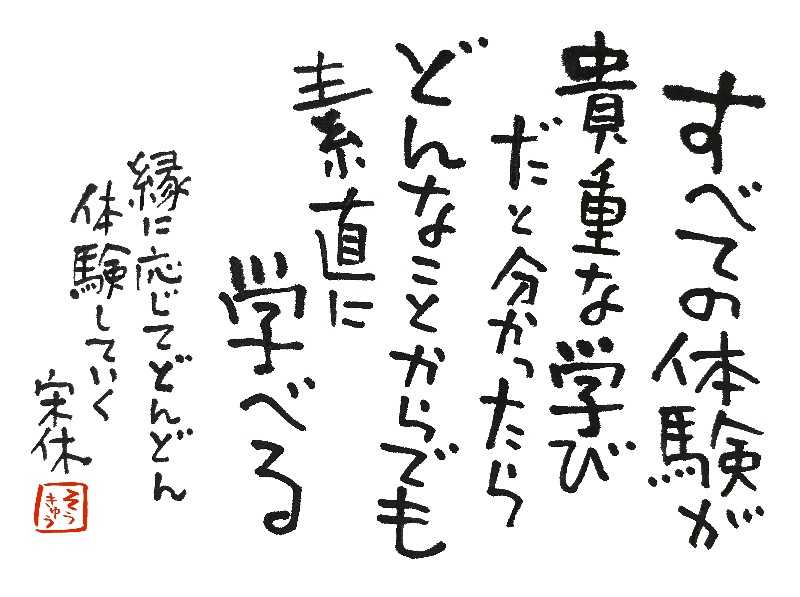 すべての体験が
貴重な学び
だと分かったら
どんなことからでも
素直に
学べる
縁に応じてどんどん
体験していく
宋休
そう
きゅう